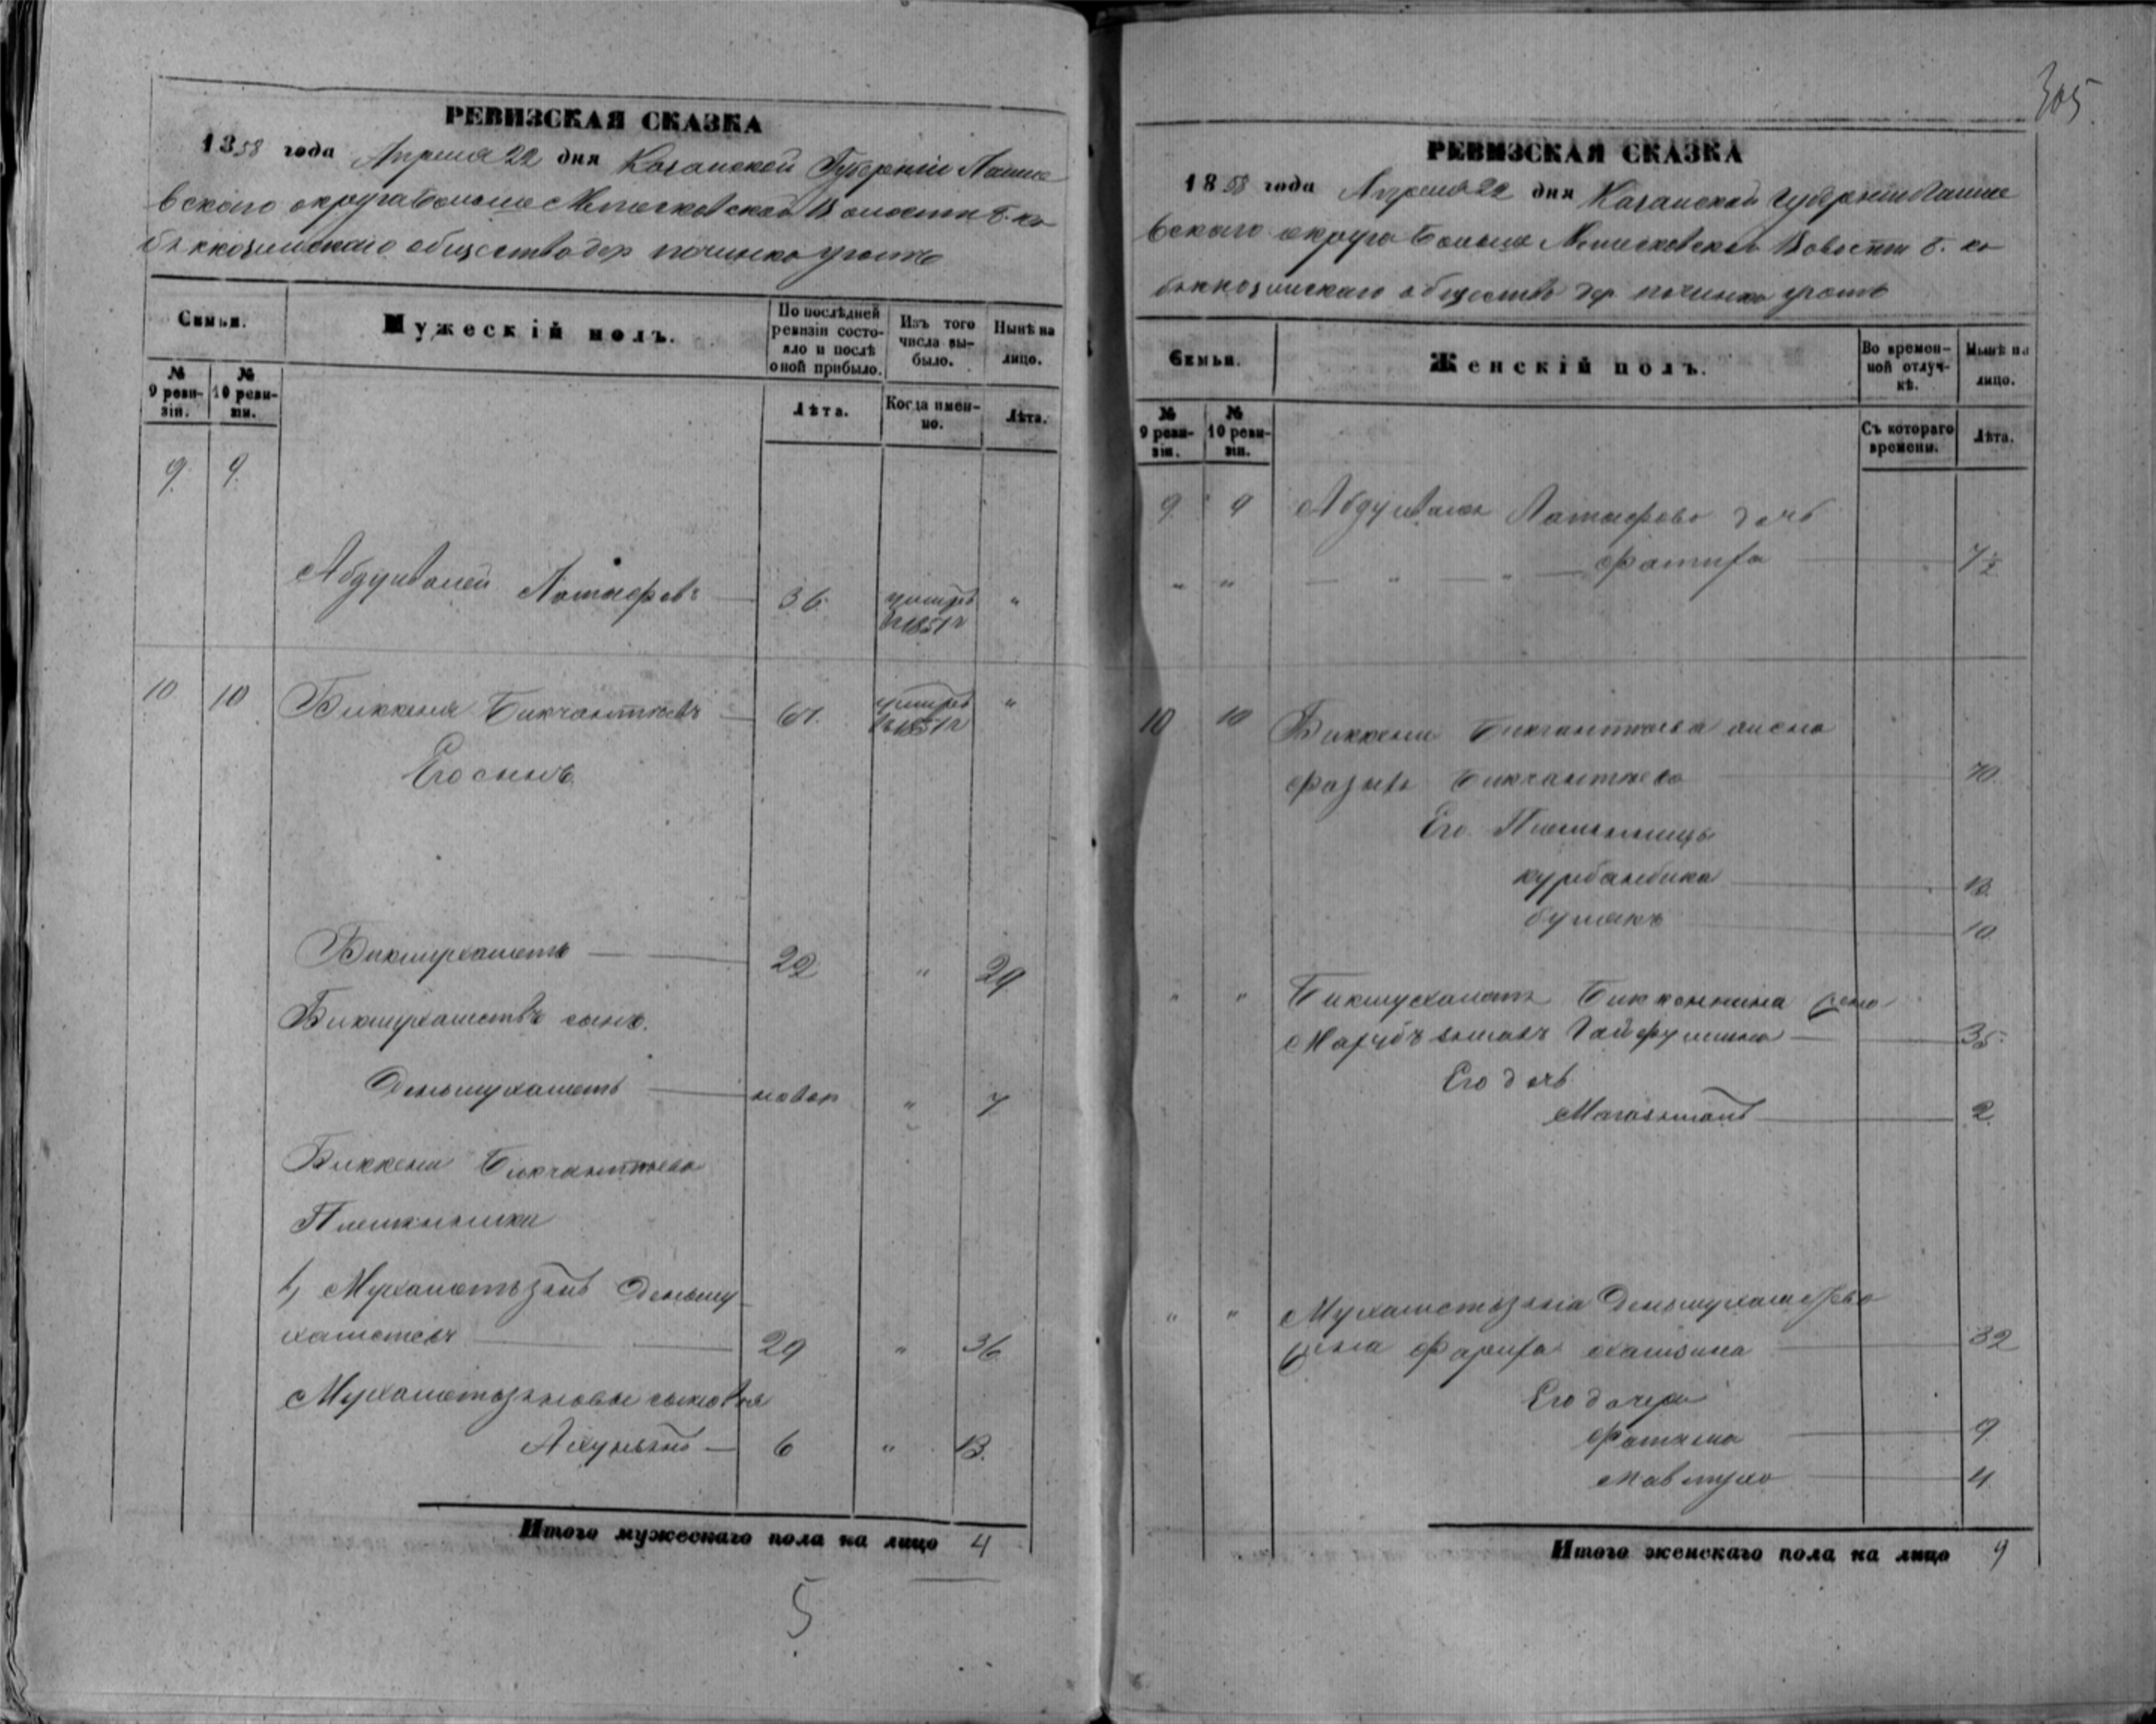 РЕВИЗСКАЯ СКАЗКА
1858 года Апреля 22 дня Казанской Губернiи Лаише
вскаго округа Больше Метесковской Волости Б. ко
бьккозинскаго общества дер починка
Семьи.
Мужескiй полъ.
По послѣдней ревизiи состояло и послѣ оной прибыло.
Изъ того числа выбыло.
Нынѣ на лицо.
№ 9 ревизiи.
№ 10 ревизiи.
Лѣта.
Когда именно.
Лѣта.
9. 9.
Абдулвалей Латыфовъ — 36. умеръ въ 1851 г "
10 10 Биккеня Бикчантѣевъ — 67. умеръ въ 1851 г "
Его сынъ
Бикмухаметъ — 22 " 29
Бикмухаметовъ сынъ.
Деньмухаметъ — новор " 7
Биккени Бикчантѣева
Племянники
1, Мухаметьзянъ Деньму
хаметевъ — 29 " 36
Мухаметьзяновы сыновья
Ахунзянъ — 6 " 13.
Итого мужескаго пола на лицо 4
5
305.
РЕВИЗСКАЯ СКАЗКА
1858 года Апреля 22 дня Казанской Губернiи Лаише
вскаго округа Больше Метесковской Волости Б. ко
бьккозинскаго общества дер. починка
Семьи.
Женскiй полъ.
Во временной отлучкѣ.
Нынѣ на лицо.
№ 9 ревизiи.
№ 10 ревизiи.
Съ котораго времени.
Лѣта.
9. 9 Абдулвалея Латыфова дочь
" " — " — " — Фатиха — 7½
10 10 Биккени Бикчантѣева жена
Бикчантѣева — 70.
Его Племянницы
курбанбика — 13.
— 10
" " Бикмухамета Биккенина жена
Гайфуллина — 35.
Его дочь
— 2
" " Мухаметьзяна Деньмухаметева
жена Фариха — 32
Его дочери
Фатыма — 9.
Мавлюха — 4.
Итого женскаго пола на лицо 9